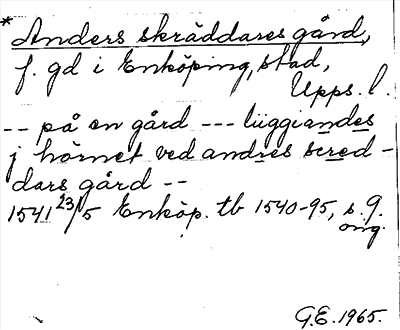 * Anders skräddares gård,
f. gd i Enköping, stad,
Upps. l.
-- på en gård --- lüggiandes
j hörnet ved andres scred-
dars gård --
1541 23/5 Enköp. tb 1540-95, s. 9.
orig.
G.E. 1965.